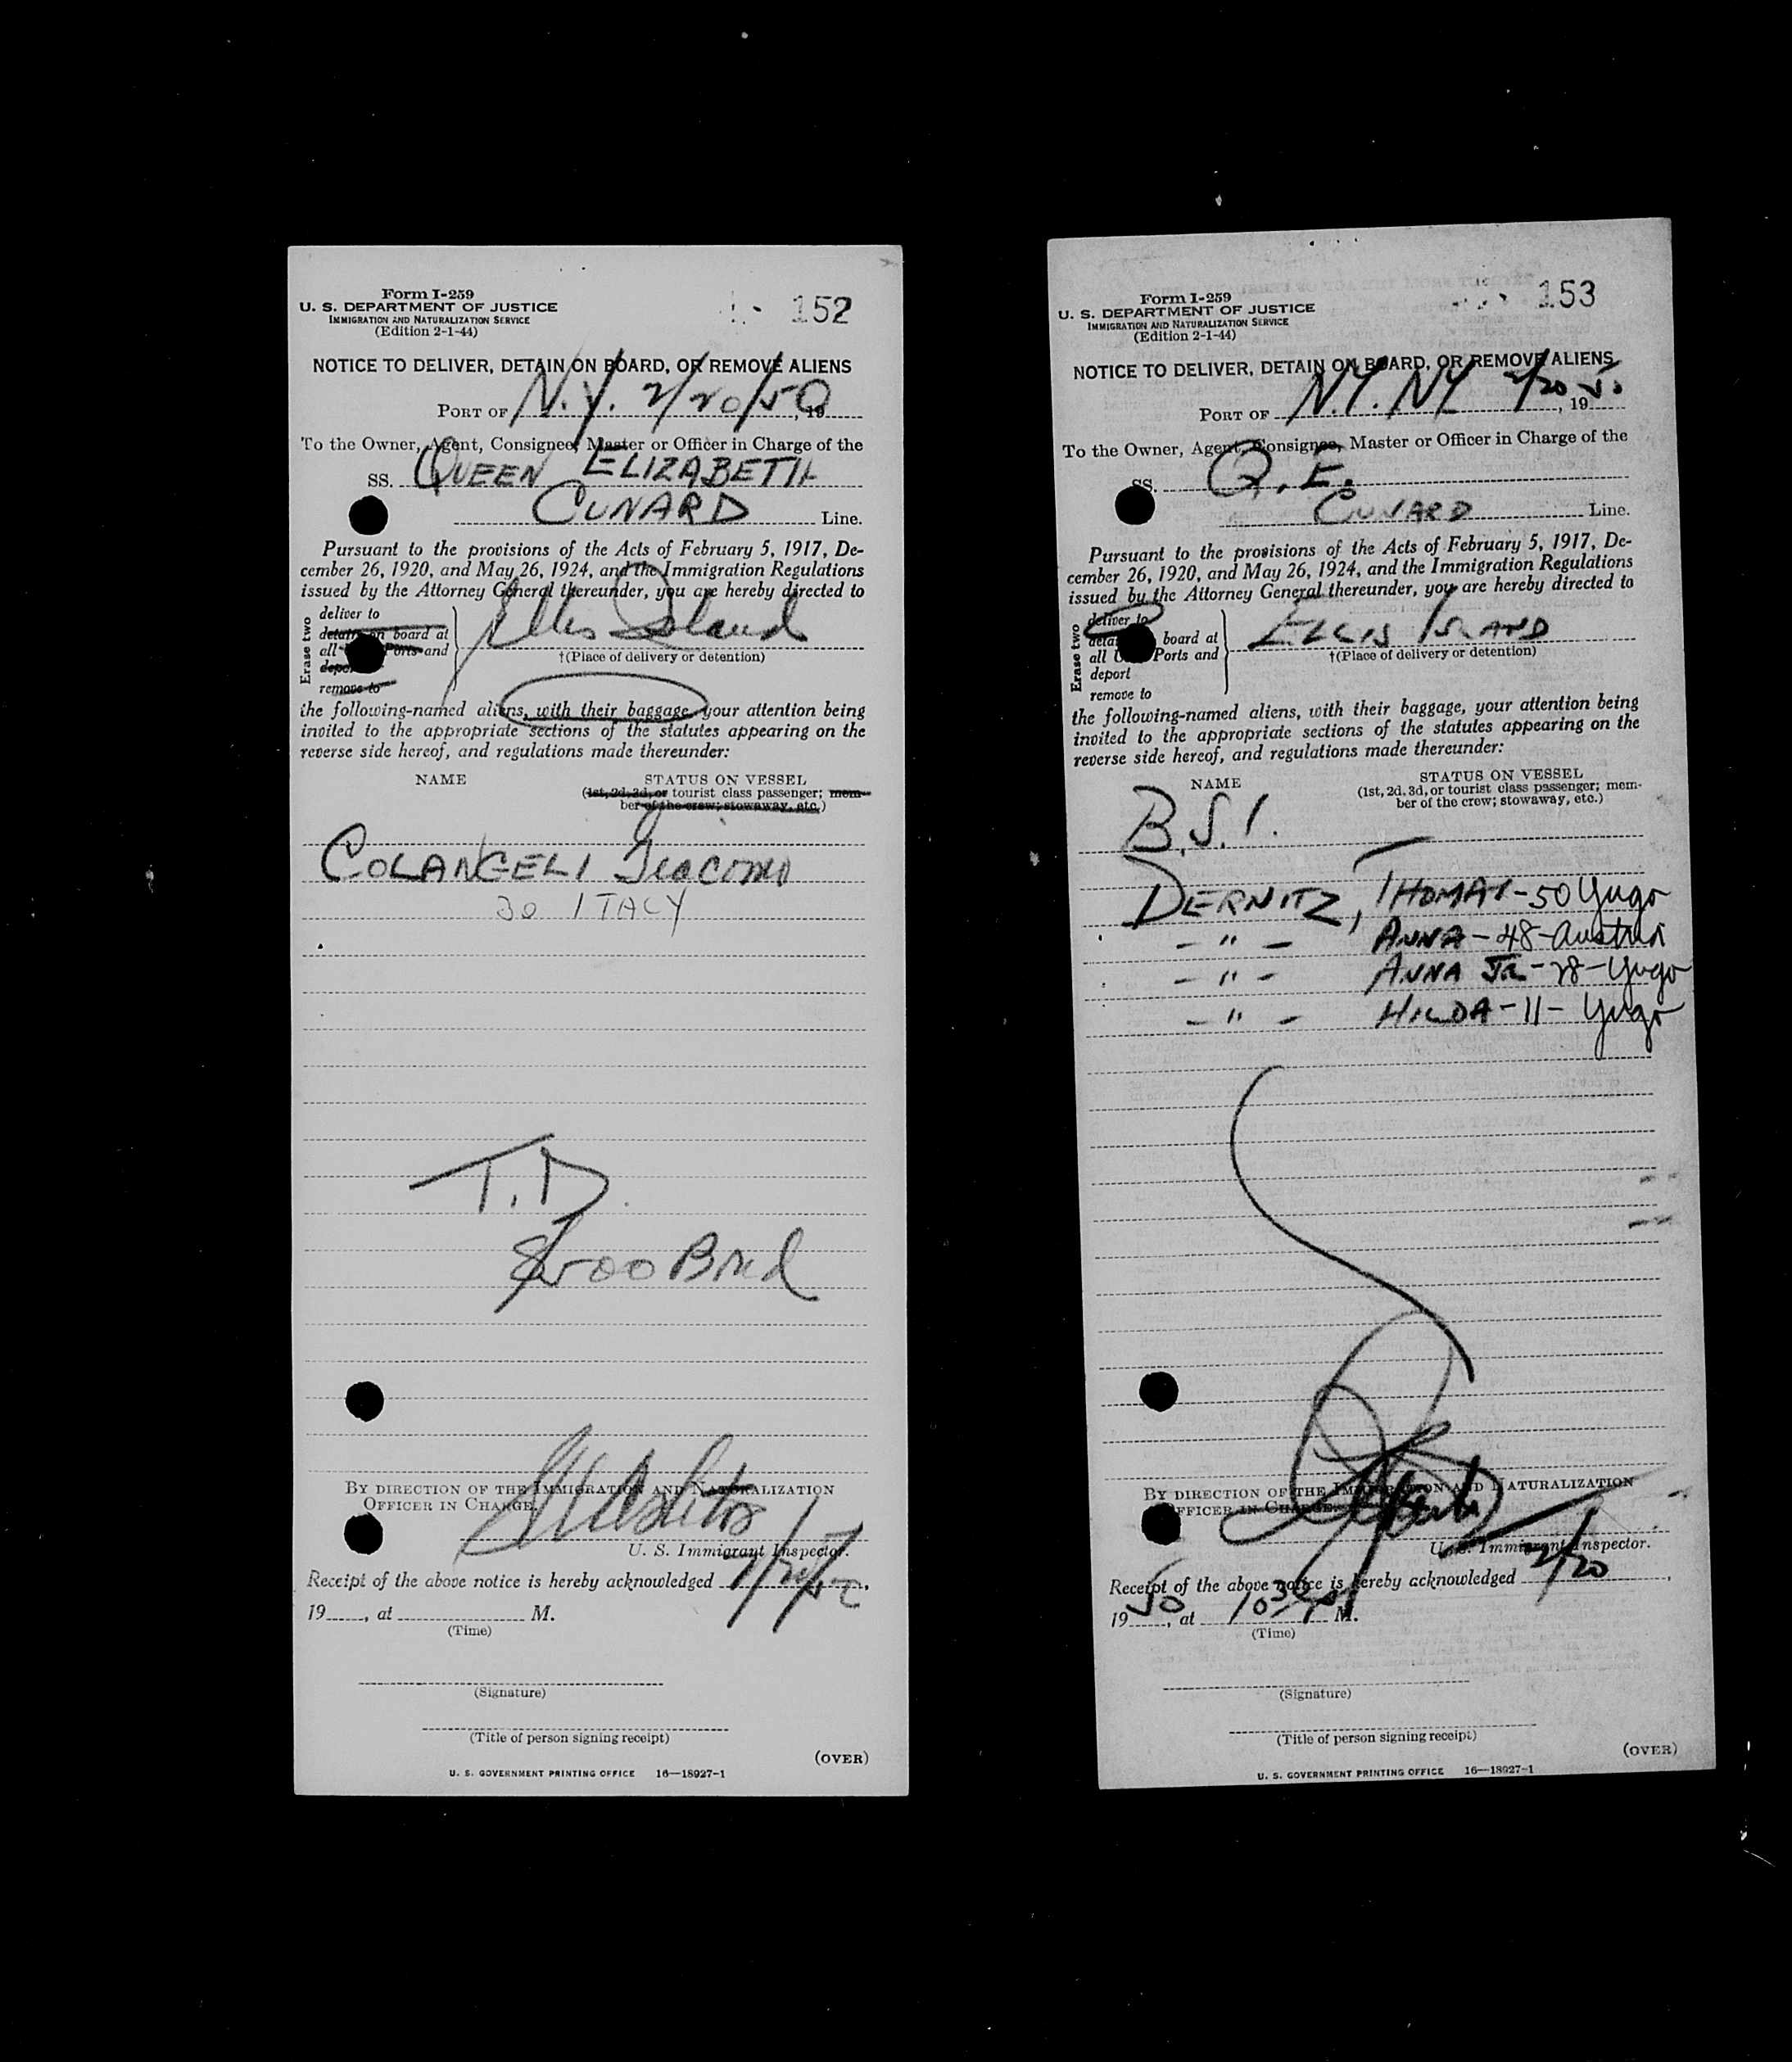 Form I-259
U. S. DEPARTMENT OF JUSTICE
IMMIGRATION AND NATURALIZATION SERVICE
(Edition 2-1-44)
152
NOTICE TO DELIVER, DETAIN ON BOARD, OR REMOVE ALIENS
PORT OF N.Y. 2/20/50, 19
To the Owner, Agent, Consignee, Master or Officer in Charge of the
SS. QUEEN ELIZABETH
CUNARD Line.
Pursuant to the provisions of the Acts of February 5, 1917, De-
cember 26, 1920, and May 26, 1924, and the Immigration Regulations
issued by the Attorney General thereunder, you are hereby directed to
Erase two
deliver to
detain on board at
all Ports and
depor
remove to
Ellis Island
†(Place of delivery or detention)
the following-named aliens, with their baggage, your attention being
invited to the appropriate sections of the statutes appearing on the
reverse side hereof, and regulations made thereunder:
NAME STATUS ON VESSEL
(1st, 2d, 3d, or tourist class passenger; mem-
ber of the crew; stowaway, etc.)
COLANGELI Giacomo
30 ITALY
T.D.
$500 Bnd
BY DIRECTION OF THE IMMIGRATION AND NATURALIZATION
OFFICER IN CHARGE.
U. S. Immigrant Inspector.
Receipt of the above notice is hereby acknowledged
19, at M.
(Time)
(Signature)
(Title of person signing receipt)
(OVER)
U. S. GOVERNMENT PRINTING OFFICE 16—18927-1
Form I-259
U. S. DEPARTMENT OF JUSTICE
IMMIGRATION AND NATURALIZATION SERVICE
(Edition 2-1-44)
153
NOTICE TO DELIVER, DETAIN ON BOARD, OR REMOVE ALIENS
PORT OF N.Y. NY 2/20, 19 50
To the Owner, Agent, Consignee, Master or Officer in Charge of the
SS. Q.E.
CUNARD Line.
Pursuant to the provisions of the Acts of February 5, 1917, De-
cember 26, 1920, and May 26, 1924, and the Immigration Regulations
issued by the Attorney General thereunder, you are hereby directed to
Erase two
deliver to
detai board at
all U Ports and
deport
remove to
ELLIS ISLAND
†(Place of delivery or detention)
the following-named aliens, with their baggage, your attention being
invited to the appropriate sections of the statutes appearing on the
reverse side hereof, and regulations made thereunder:
NAME STATUS ON VESSEL
(1st, 2d, 3d, or tourist class passenger; mem-
ber of the crew; stowaway, etc.)
B.S.I.
DERNITZ, THOMAS-50 Yugo
- " - ANNA-48-Austria
- " - ANNA Jr-28-Yugo
- " - HILDA-11-Yugo
BY DIRECTION OF THE IMMIGRATION AND NATURALIZATION
OFFICER IN CHARGE.
U. S. Immigrant Inspector.
Receipt of the above notice is hereby acknowledged 2/20,
19 50, at 10 30 M.
(Time)
(Signature)
(Title of person signing receipt)
(OVER)
U. S. GOVERNMENT PRINTING OFFICE 16—18927-1